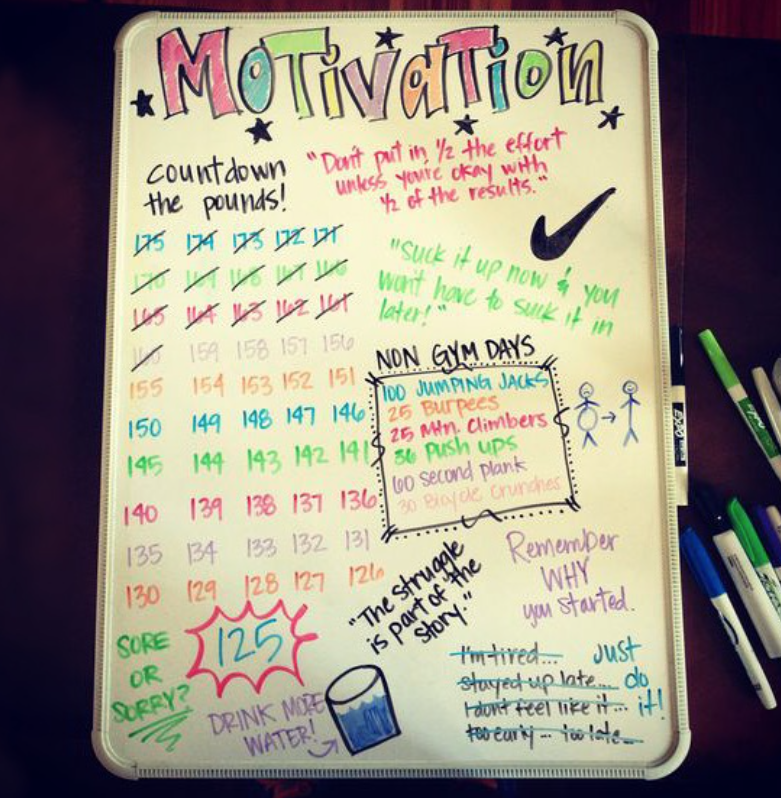 MoTivaTion
countdown
the pounds!
"Don't put in 1/2 the effort
unless you're okay with
1/2 of the results."
"Suck it up now & you
won't have to suck it in
later!"
175 174 173 172 171
170 169 168 167 166
165 164 163 162 161
160 159 158 157 156
155 154 153 152 151
150 149 148 147 146
145 144 143 142 141
140 139 138 137 136
135 134 133 132 131
130 129 128 127 126
125
NON GYM DAYS
100 JUMPING JACKS
25 Burpees
25 Mtn. Climbers
36 Push ups
60 second plank
30 Bicycle Crunches
"The struggle
is part of the
story."
Remember
WHY
you started.
SORE
OR
SORRY?
DRINK MORE
WATER!
I'm tired...
stayed up late...
I dont feel like it...
too early... too late...
Just
do
it!
EXPO